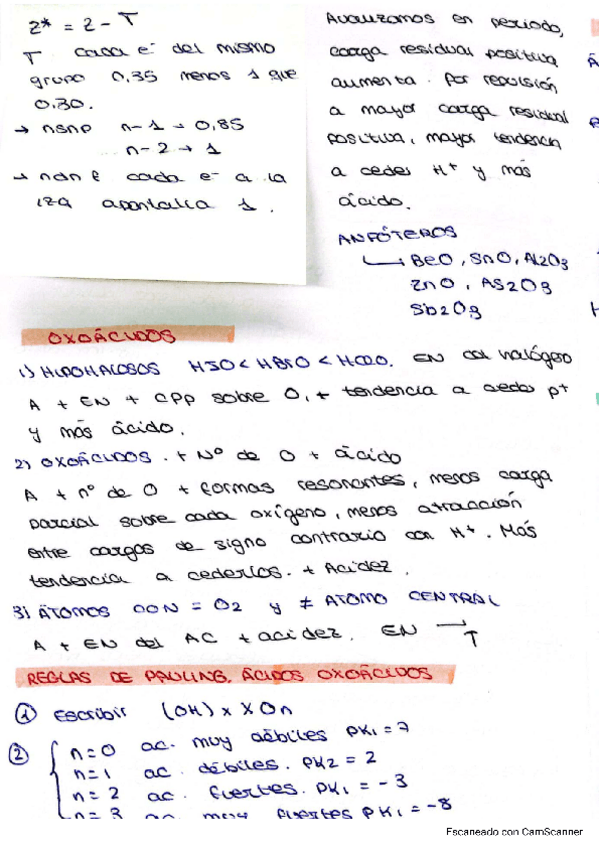 Z* = Z - T
T cada e⁻ del mismo
grupo 0,35 menos 1 que
0,30.
→ nsnp n-1 → 0,85
n-2 → 1
→ ndnf cada e⁻ a la
izq apantalla 1.
Avanzamos en periodo,
carga residual positiva
aumenta. Por repulsión
a mayor carga residual
positiva, mayor tendencia
a ceder H⁺ y más
ácido.
ANFÓTEROS
BeO, SnO, Al2O3
ZnO, As2O3
Sb2O3
OXOÁCIDOS
1) HIPOHALOSOS HIO < HBrO < HClO. EN del halógeno
A + EN + CPP sobre O, + tendencia a ceder p⁺
y más ácido.
2) OXOÁCIDOS. + Nº de O + ácido
A + nº de O + formas resonantes, menos carga
parcial sobre cada oxígeno, menos atracción
entre cargas de signo contrario con H⁺. Más
tendencia a cederlos. + Acidez.
3) ÁTOMOS CON = O2 y ≠ ÁTOMO CENTRAL
A + EN del AC + acidez. EN → ↑
REGLAS DE PAULING. ÁCIDOS OXOÁCIDOS
① Escribir (OH)x XOn
② n=0 ac. muy débiles pK1 = 7
n=1 ac. débiles. pK2 = 2
n=2 ac. fuertes. pK1 = -3
n=3 ac. muy fuertes pK1 = -8
Escaneado con CamScanner